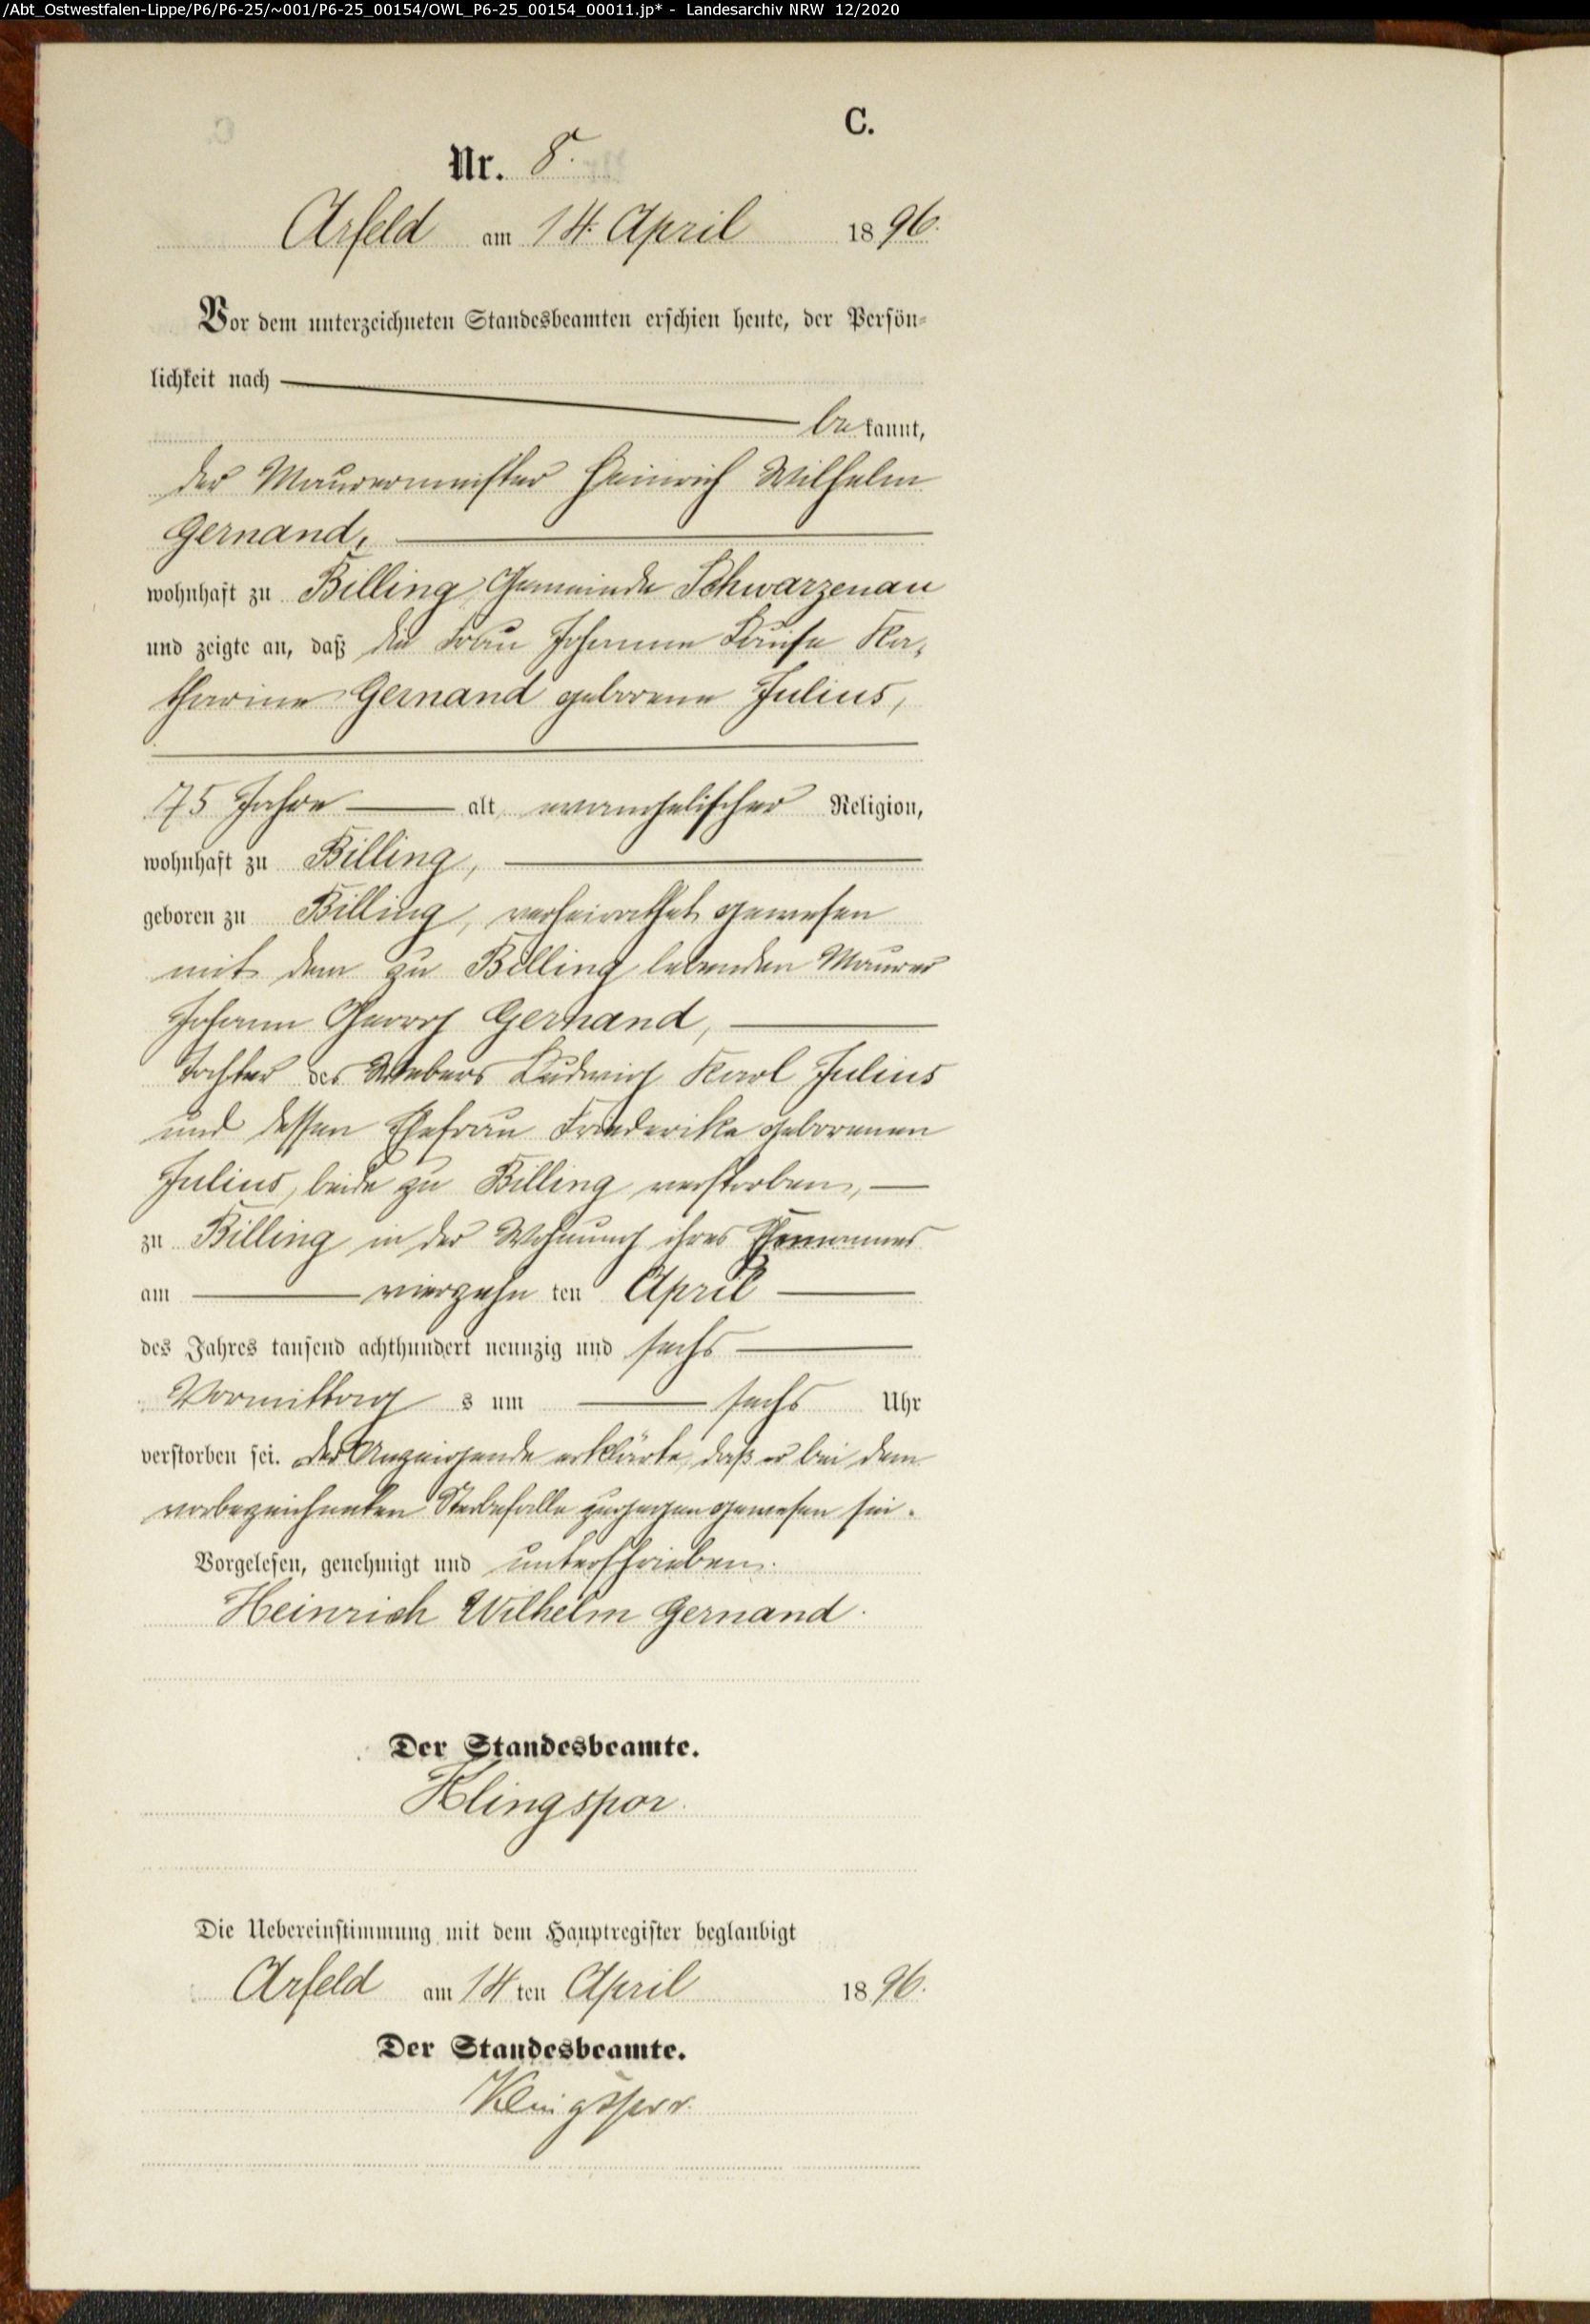 /Abt_Ostwestfalen-Lippe/P6/P6-25/~001/P6-25_00154/OWL_P6-25_00154_00011.jp* - Landesarchiv NRW 12/2020
C.
Nr. 8.
Arfeld am 14. April 1896.
Vor dem unterzeichneten Standesbeamten erschien heute, der Persön-
lichkeit nach
bekannt,
der Maurermeister Heinrich Wilhelm
Gernand,
wohnhaft zu Billing, Gemeinde Schwarzenau
und zeigte an, daß die Frau Johanne Louise Ka-
tharine Gernand geborene Julius,
75 Jahre alt, evangelischer Religion,
wohnhaft zu Billing,
geboren zu Billing, verheirathet gewesen
mit dem zu Billing lebenden Maurer
Johann Georg Gernand,
Tochter des Webers Ludwig Karl Julius
und dessen Ehefrau Friederike geborenen
Julius, beide zu Billing verstorben,
zu Billing in der Wohnung ihres Ehemannes
am vierzehn ten April
des Jahres tausend achthundert neunzig und sechs
Vormittag s um sechs Uhr
verstorben sei. Der Anzeigende erklärte, daß er bei dem
vorbezeichneten Sterbefalle zugegen gewesen sei.
Vorgelesen, genehmigt und unterschrieben.
Heinrich Wilhelm Gernand.
Der Standesbeamte.
Klingspor.
Die Uebereinstimmung mit dem Hauptregister beglaubigt
Arfeld am 14 ten April 1896.
Der Standesbeamte.
Klingspor.